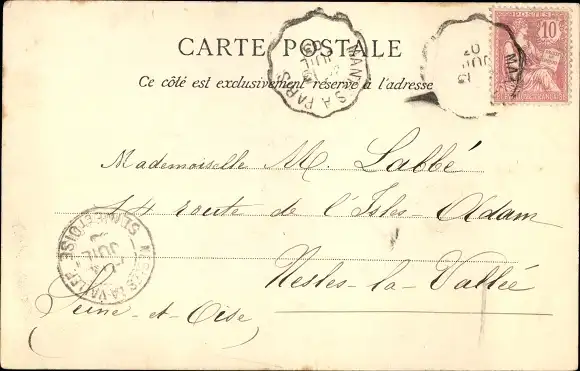 CARTE POSTALE
Ce côté est exclusivement réservé à l'adresse
POSTES
10
MANTES A PARIS
Mademoiselle M. Labbé
14 route de l'Isles-Adam
Nesles-la-Vallée
(Seine-et-Oise)
NESLES-LA-VALLÉE
SEINE-ET-OISE
JUIL